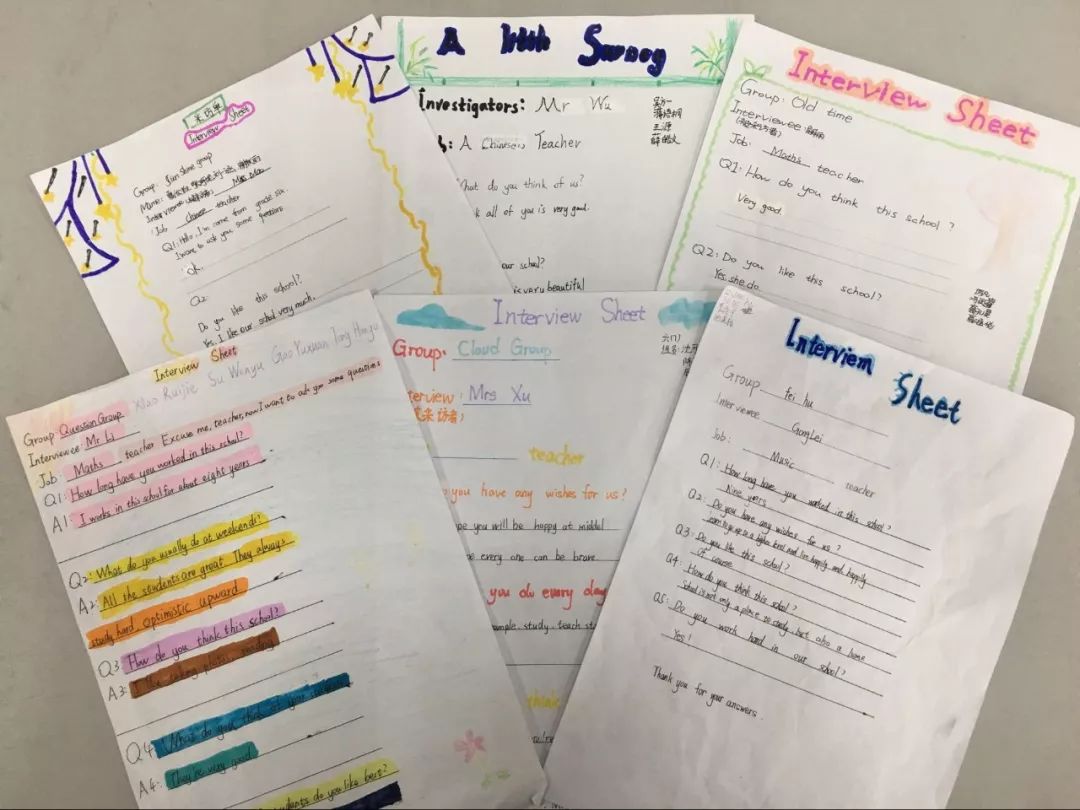 采访单
Interview Sheet
Group: Sun shine group
Name:
Interview
Job: teacher
Q1: Hello, I'm come from grade six.
I want to ask you some questions
ok.
Q2:
Do you like this school?
Yes, I like our school very much.
A little
Investigators: Mr Wu
A Chinese Teacher
What do you think of us?
k all of you is very good.
our school?
is very beautiful
Interview Sheet
Group: Old time
Interviewee
Job: Maths teacher
Q1: How do you think this school?
Very good.
Q2: Do you like this school?
Yes, she do.
Interview Sheet
Xiao Ruijie Su Wenyu Gao Yuxuan
Group Question Group
Interviewee: Mr Li
Job: Maths teacher Excuse me, teacher, now I want to ask you some questions
Q1: How long have you worked in this school?
A1: I works in this school for about eight years
Q2: What do you usually do at weekends?
A2: All the students are great. They always
study hard, optimistic upward
Q3: How do you think this school?
A3: reading
Q4:
A4: They're very good
students do you like best?
Interview Sheet
Group: Cloud Group
terview: Mrs Xu
teacher
you have any wishes for us?
pe you will be happy at middel
every one can be brave
you do every day
ample, study, teach st
think
Interviem Sheet
Group fei hu
Interviewee GongLei
Job: Music teacher
Q1: How long have you worked in this school?
Nine years
Q2: Do you have any wishes for us?
Q3: Do you like this school?
Of course
Q4: How do you think this school?
School is not only a place to study, but also a home
Q5: Do you work hard in our school?
Yes!
Thank you for your answers.